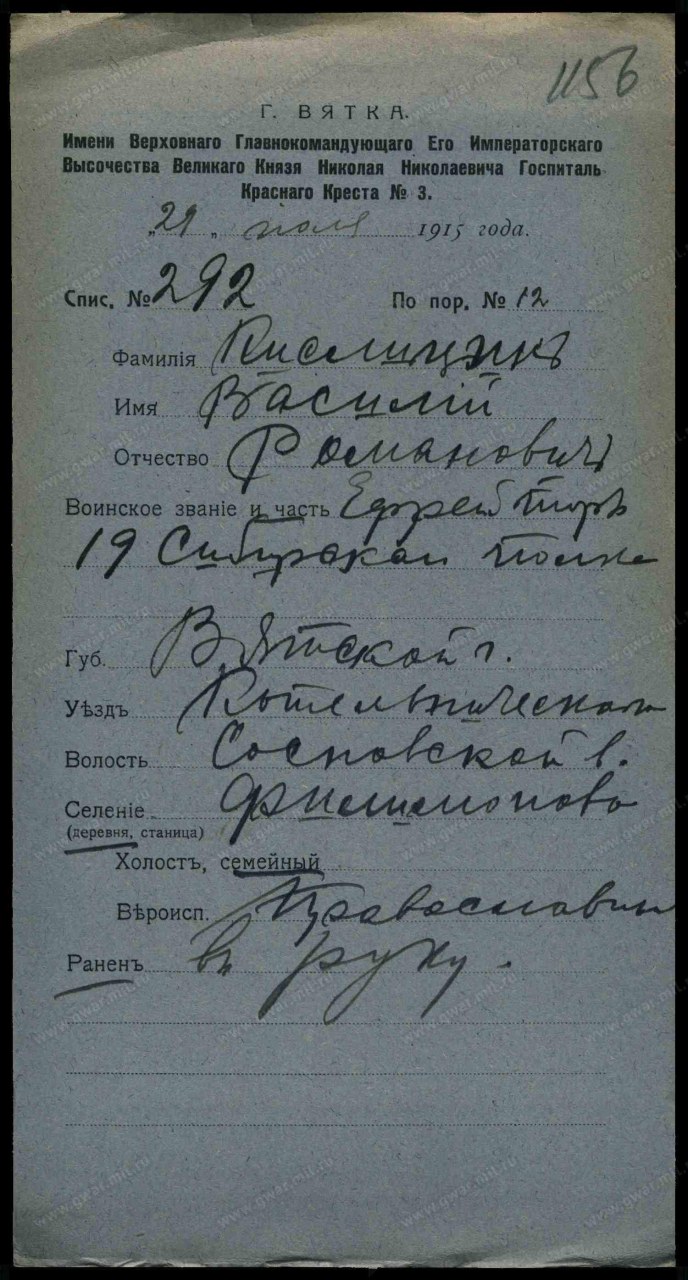 1156
Г. ВЯТКА.
Имени Верховнаго Главнокомандующаго Его Императорскаго
Высочества Великаго Князя Николая Николаевича Госпиталь
Краснаго Креста № 3.
„29„ июля 1915 года.
Спис. № 292 По пор. № 12
Фамилія Кислицинъ
Имя Василій
Отчество Романовичъ
Воинское званіе и часть Ефрейторъ
19 Сибирскаго полка
Губ. Вятской г.
Уѣздъ Котельническаго
Волость Сосновской в.
Селеніе Филимоново
(деревня, станица)
Холостъ, семейный
Вѣроисп. Православный
Раненъ въ руку.